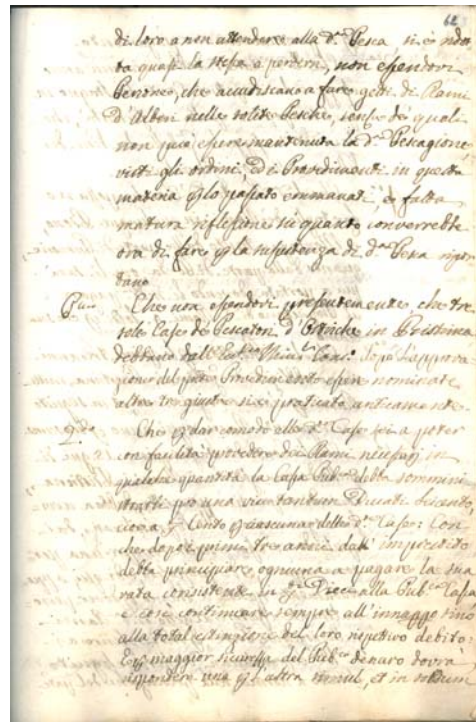 62
di loro a non attendere alla d.ª Pesca si è ridot
ta quasi la stessa a perdersi, non essendovi
Persone, che accudiscano a fare getti di Rami
d'Alberi nelle solite Pesche, senza de quali
non può essere mantenuta la d.ª Pescagione
visti gli ordini, ed i Provedimenti in questa
materia p lo passato emmanati, e fatta
matura riflessione su quanto converrebbe
ora di fare p la sussistenza di d.ª Pesca
Che non essendovi presentemente che tre
sole Case de Pescatori d'Ostriche in
debbano dall' dopo l'approva
zione del Provedimento esser nominate
altre tre giusta si è praticato anticamente
2.do Che p dar comodo alle d.e Case sei a poter
con facilità provedere dei Rami necessarj in
qualche quantità la Cassa Pub.ca debba sommini
strarli per una vice tantum Ducati
cioè Cento p ciascuna delle d.e Case: con
che dopo i primi tre anni dall' imprestito
debba principiare ogniuna a pagare la sua
rata consistente in alla Pub.ca Cassa
e così continuare sempre all'innanzi sino
alla total estinzione del loro rispettivo debito
E p maggior sicurezza del Pub.co denaro dovrà
rispondere una p l'altra simul, et in solidum